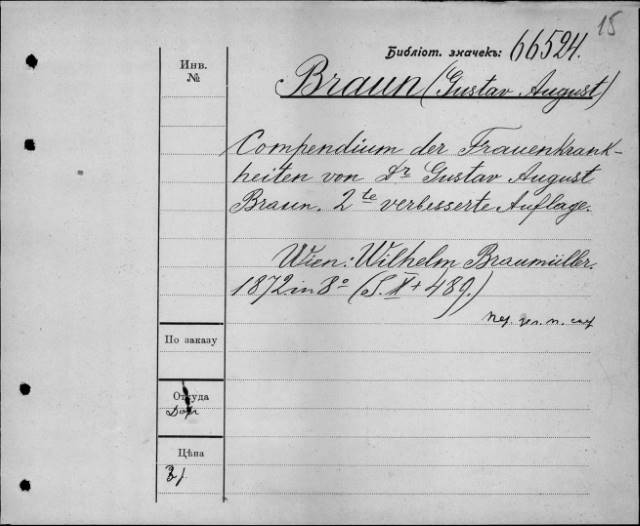 15
Библіот. значекъ: 66524.
Инв.
№
Braun (Gustav August)
Compendium der Frauenkrank-
heiten von Dr Gustav August
Braun. 2te verbesserte Auflage.
Wien: Wilhelm Braumüller.
1872 in 8° (S. X + 489.)
По заказу
Откуда
Цѣна